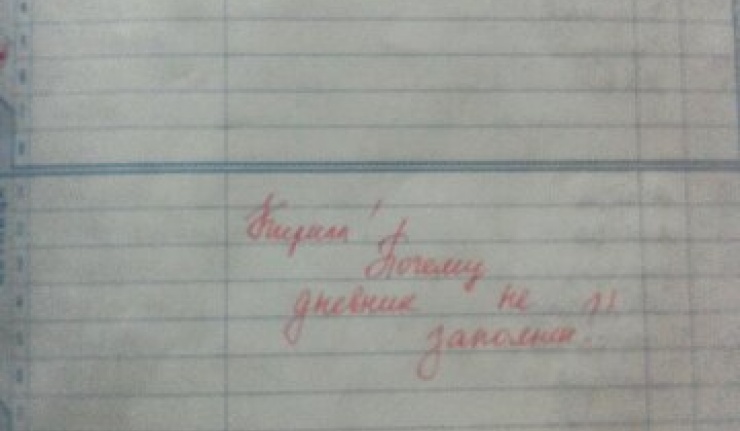 Кирилл!
Почему
дневник не
заполнен?!